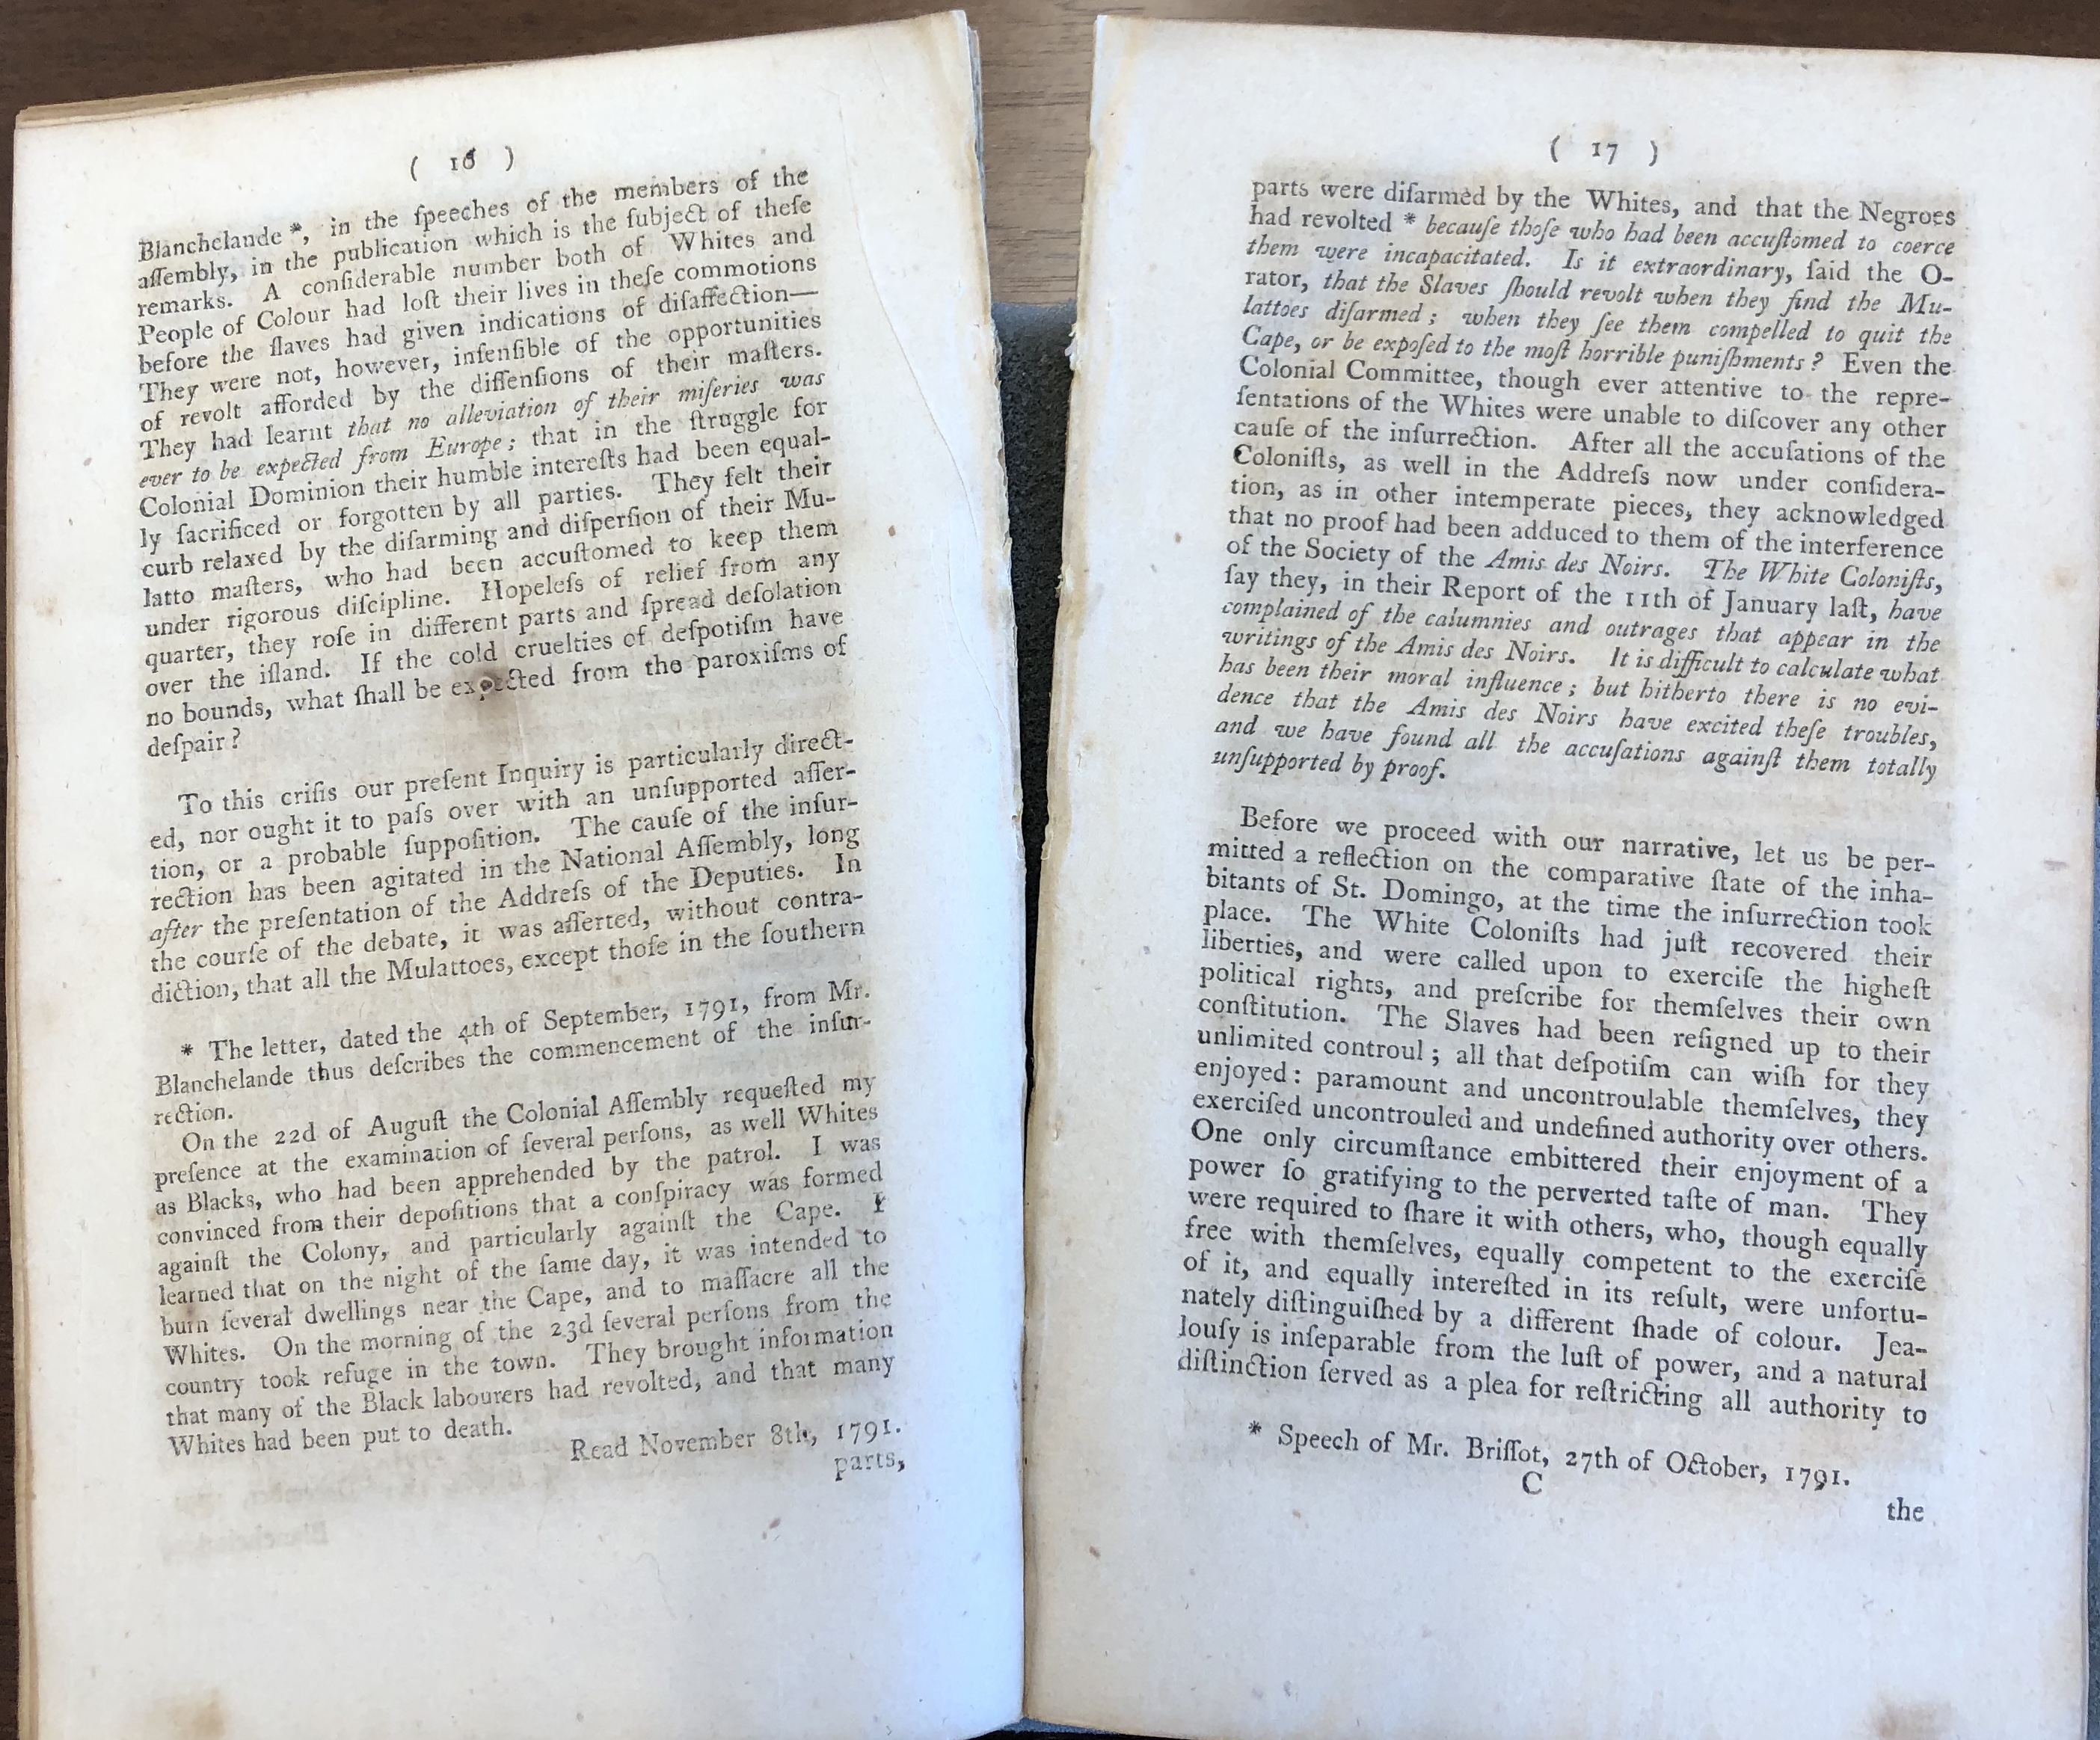 ( 16 )
Blanchelande *, in the ſpeeches of the members of the
aſſembly, in the publication which is the ſubject of theſe
remarks. A conſiderable number both of Whites and
People of Colour had loſt their lives in theſe commotions
before the ſlaves had given indications of diſaffection—
They were not, however, inſenſible of the opportunities
of revolt afforded by the diſſenſions of their maſters.
They had learnt that no alleviation of their miſeries was
ever to be expected from Europe; that in the ſtruggle for
Colonial Dominion their humble intereſts had been equal-
ly ſacrificed or forgotten by all parties. They felt their
curb relaxed by the diſarming and diſperſion of their Mu-
latto maſters, who had been accuſtomed to keep them
under rigorous diſcipline. Hopeleſs of relief from any
quarter, they roſe in different parts and ſpread deſolation
over the iſland. If the cold cruelties of deſpotiſm have
no bounds, what ſhall be expected from the paroxiſms of
deſpair?
To this criſis our preſent Inquiry is particularly direct-
ed, nor ought it to paſs over with an unſupported aſſer-
tion, or a probable ſuppoſition. The cauſe of the inſur-
rection has been agitated in the National Aſſembly, long
after the preſentation of the Addreſs of the Deputies. In
the courſe of the debate, it was aſſerted, without contra-
diction, that all the Mulattoes, except thoſe in the ſouthern
* The letter, dated the 4th of September, 1791, from Mr.
Blanchelande thus deſcribes the commencement of the inſur-
rection.
On the 22d of Auguſt the Colonial Aſſembly requeſted my
preſence at the examination of ſeveral perſons, as well Whites
as Blacks, who had been apprehended by the patrol. I was
convinced from their depoſitions that a conſpiracy was formed
againſt the Colony, and particularly againſt the Cape. I
learned that on the night of the ſame day, it was intended to
burn ſeveral dwellings near the Cape, and to maſſacre all the
Whites. On the morning of the 23d ſeveral perſons from the
country took refuge in the town. They brought information
that many of the Black labourers had revolted, and that many
Whites had been put to death.
Read November 8th, 1791.
parts,
( 17 )
parts were diſarmed by the Whites, and that the Negroes
had revolted * becauſe thoſe who had been accuſtomed to coerce
them were incapacitated. Is it extraordinary, ſaid the O-
rator, that the Slaves ſhould revolt when they find the Mu-
lattoes diſarmed; when they ſee them compelled to quit the
Cape, or be expoſed to the moſt horrible puniſhments? Even the
Colonial Committee, though ever attentive to the repre-
ſentations of the Whites were unable to diſcover any other
cauſe of the inſurrection. After all the accuſations of the
Coloniſts, as well in the Addreſs now under conſidera-
tion, as in other intemperate pieces, they acknowledged
that no proof had been adduced to them of the interference
of the Society of the Amis des Noirs. The White Coloniſts,
ſay they, in their Report of the 11th of January laſt, have
complained of the calumnies and outrages that appear in the
writings of the Amis des Noirs. It is difficult to calculate what
has been their moral influence; but hitherto there is no evi-
dence that the Amis des Noirs have excited theſe troubles,
and we have found all the accuſations againſt them totally
unſupported by proof.
Before we proceed with our narrative, let us be per-
mitted a reflection on the comparative ſtate of the inha-
bitants of St. Domingo, at the time the inſurrection took
place. The White Coloniſts had juſt recovered their
liberties, and were called upon to exerciſe the higheſt
political rights, and preſcribe for themſelves their own
conſtitution. The Slaves had been reſigned up to their
unlimited controul; all that deſpotiſm can wiſh for they
enjoyed: paramount and uncontroulable themſelves, they
exerciſed uncontrouled and undefined authority over others.
One only circumſtance embittered their enjoyment of a
power ſo gratifying to the perverted taſte of man. They
were required to ſhare it with others, who, though equally
free with themſelves, equally competent to the exerciſe
of it, and equally intereſted in its reſult, were unfortu-
nately diſtinguiſhed by a different ſhade of colour. Jea-
louſy is inſeparable from the luſt of power, and a natural
diſtinction ſerved as a plea for reſtricting all authority to
* Speech of Mr. Briſſot, 27th of October, 1791.
C
the